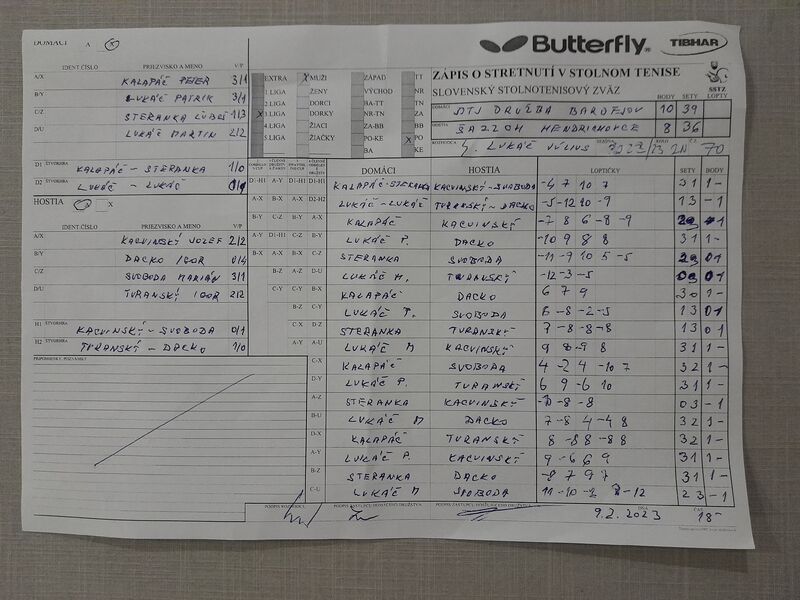 DOMÁCI A X
Butterfly
TIBHAR
IDENT.ČÍSLO PRIEZVISKO A MENO V/P
ZÁPIS O STRETNUTÍ V STOLNOM TENISE
SLOVENSKÝ STOLNOTENISOVÝ ZVÄZ
SSTZ
A/X KALAPÁČ PETER 3/1
B/Y LUKÁČ PATRIK 3/1
C/Z STERANKA ĽUBOŠ 1/3
D/U LUKÁČ MARTIN 2/2
EXTRA X MUŽI ZÁPAD TT
1.LIGA ŽENY VÝCHOD NR
2.LIGA DORCI BA-TT
X 3.LIGA DORKY NR-TN ZA
4.LIGA ŽIACI ZA-BB X PO
5.LIGA ŽIAČKY PO-KE KE
BA
BODY SETY LOPTY
DOMÁCI STJ DRUŽBA BARDEJOV 10 39
HOSTIA ŠAZZCH HENDRICHOVCE 8 36
ROZHODCA LUKÁČ JÚLIUS 70
D1 ŠTVORHRA KALAPÁČ - STERANKA 1/0
D2 ŠTVORHRA LUKÁČ - LUKÁČ 0/1
HOSTIA X
IDENT.ČÍSLO PRIEZVISKO A MENO V/P
A/X KACVINSKÝ JOZEF 2/2
B/Y DACKO IGOR 0/4
C/Z SVOBODA MARIÁN 3/1
D/U TURANSKÝ IGOR 2/2
H1 ŠTVORHRA KACVINSKÝ - SVOBODA 0/1
H2 ŠTVORHRA TURANSKÝ - DACKO 1/0
PRIPOMIENKY, POZNÁMKY
DOMÁCI HOSTIA LOPTIČKY SETY BODY
KALAPÁČ-STERANKA KACVINSKÝ-SVOBODA -4 7 10 7 31 1-
LUKÁČ-LUKÁČ TURANSKÝ-DACKO -5 -12 10 -9 13 -1
KALAPÁČ KACVINSKÝ -7 8 6 -8 -9
LUKÁČ P. DACKO -10 9 8 8 31 1-
STERANKA SVOBODA -11 -9 10 5 -5
LUKÁČ M. TURANSKÝ -12 -3 -5
KALAPÁČ DACKO 6 7 9 30 1-
SVOBODA 6 -8 -2 -5 13 01
STERANKA TURANSKÝ 7 -8 -8 -8 13 01
LUKÁČ M KACVINSKÝ 9 8 -9 8 31 1-
KALAPÁČ SVOBODA 4 -2 4 -10 7 32 1-
LUKÁČ P. TURANSKÝ 6 9 -6 10 31 1-
STERANKA KACVINSKÝ -8 -8 03 -1
LUKÁČ M DACKO 7 -8 4 -4 8 32 1-
KALAPÁČ TURANSKÝ 8 -8 8 -8 8 32 1-
LUKÁČ P. KACVINSKÝ 9 -6 6 9 31 1-
STERANKA DACKO 7 9 7 31 1-
LUKÁČ M SVOBODA 11 -10 -2 -12 23 -1
PODPIS ROZHODCU PODPIS ZÁSTUPCU DOMÁCEHO DRUŽSTVA PODPIS ZÁSTUPCU HOSŤUJÚCEHO DRUŽSTVA
9.2.2023 18